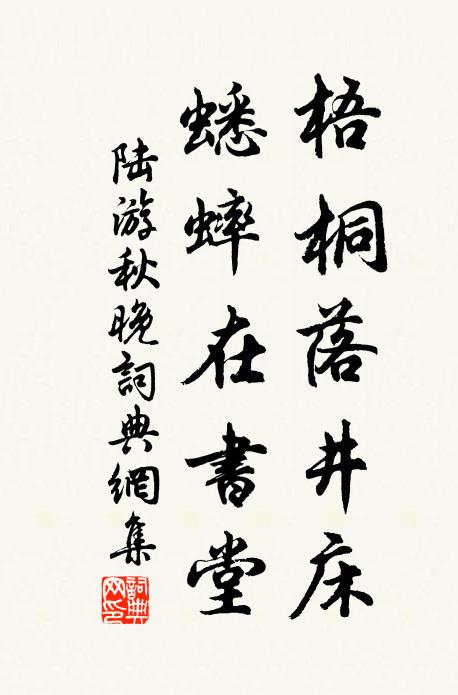 梧桐落井床
蟋蟀在書堂
陸游秋晚詞典網集
詞典網印